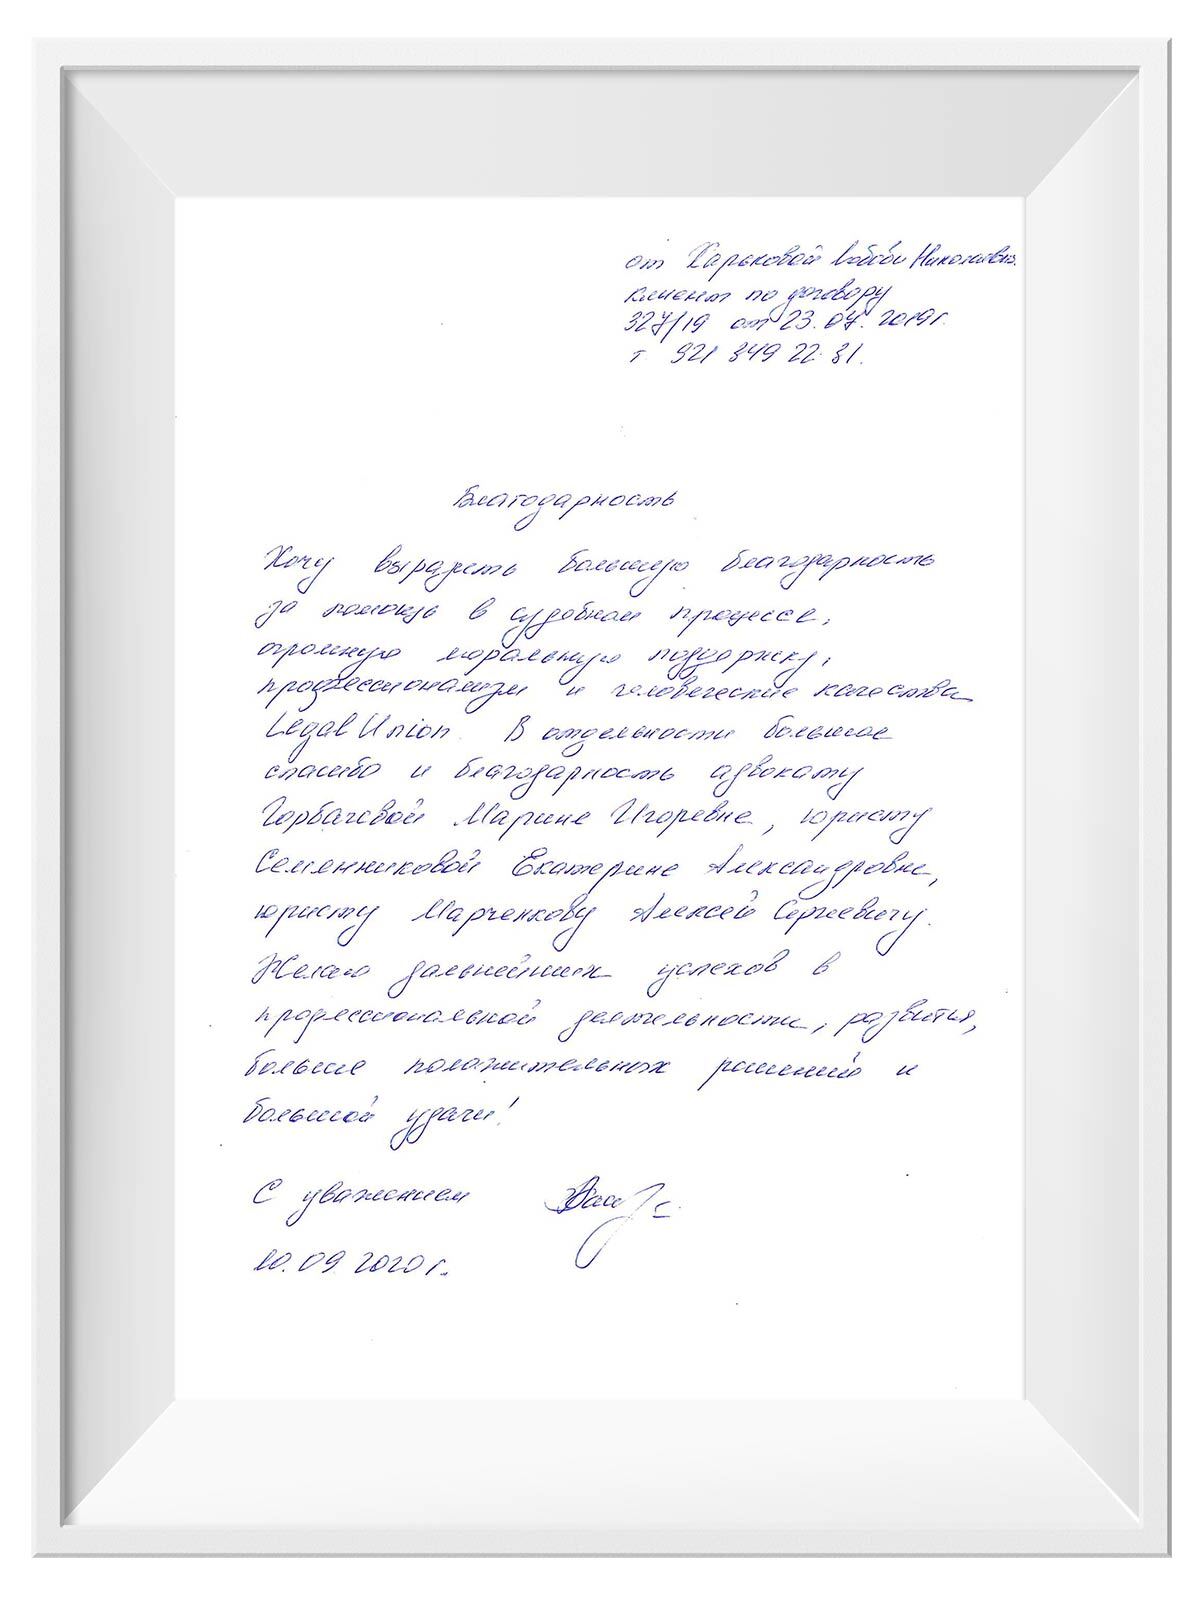 от Харьковой Любови Николаевны
клиент по договору
327/19 от 23.07.2019г.
т 921 349 22 31.
Благодарность
Хочу выразить большую благодарность
за помощь в судебном процессе,
огромную моральную поддержку,
профессионализм и человеческие качества
Legal Union. В отдельности большое
спасибо и благодарность адвокату
Горбачевой Марине Игоревне, юристу
Семенниковой Екатерине Александровне,
юристу Марченкову Алексей Сергеевичу.
Желаю дальнейших успехов в
профессиональной деятельности, развития,
больше положительных решений и
большой удачи!
С уважением
10.09 2020 г.